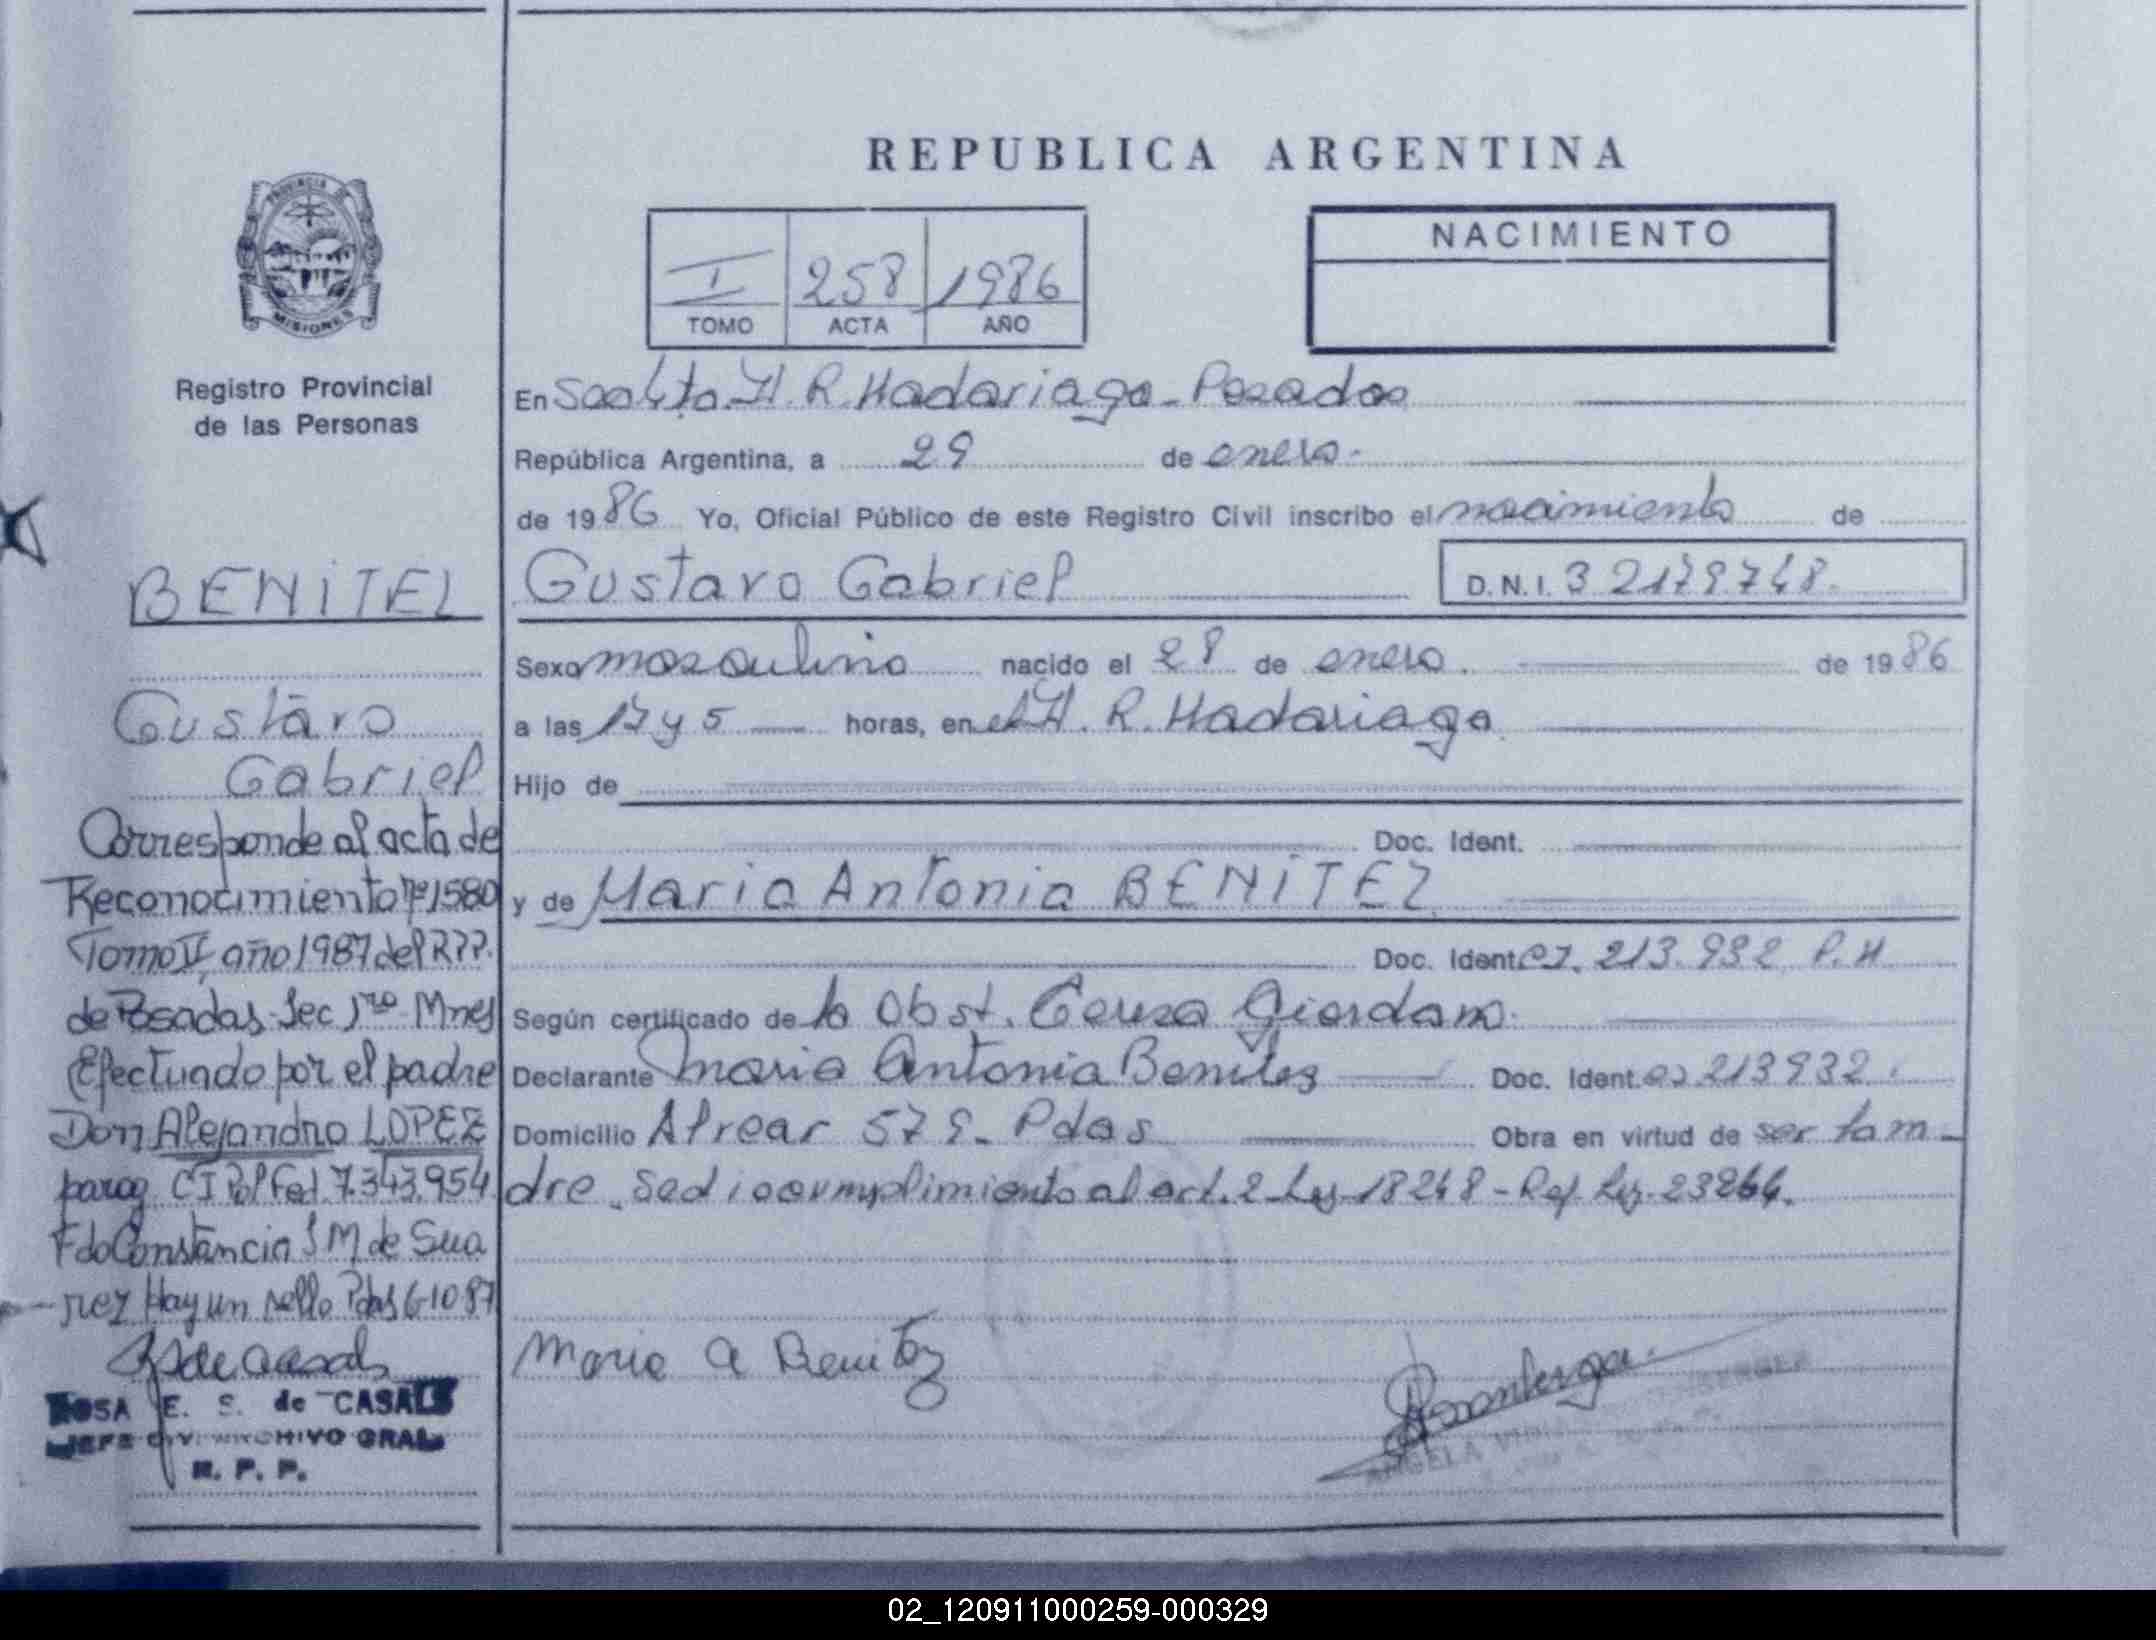 REPUBLICA ARGENTINA
PROVINCIA DE
MISIONES
Registro Provincial
de las Personas
I 258 1986
TOMO ACTA AÑO
NACIMIENTO
En H. R. Madariaga - Posadas
República Argentina, a 29 de enero.
de 1986 Yo, Oficial Público de este Registro Civil inscribo el nacimiento de
Gustavo Gabriel D.N.I. 32179748.
Sexo masculino nacido el 28 de enero. de 1986
a las 17 y 5 horas, en el H. R. Madariaga
Hijo de
Doc. Ident.
y de Maria Antonia BENiTEZ
Doc. Ident. 213.932 P.M
Según certificado de la Obst. Giordano.
Declarante Maria Antonia Benitez Doc. Ident. 213932.
Domicilio Alvear 579- Pdas Obra en virtud de ser la ma-
dre. Se dio cumplimiento al art. 2 Ley 18248 - Ref Ley 23264.
Maria A Benitez
BENiTEZ
Gustavo
Gabriel
Corresponde al acta de
Reconocimiento Nº 1580
Tomo V, año 1987 del R.P.P.
de Posadas Sec 1ra Mnes
Efectuado por el padre
Don Alejandro LOPEZ
parag CI Pol Fed 7.343.954
Fdo Constancia S M de Sua
rez Hay un sello Pdas 6-10 87
ROSA E. S. de CASALS
JEFE DIV. ARCHIVO GRAL
R. P. P.
02_120911000259-000329